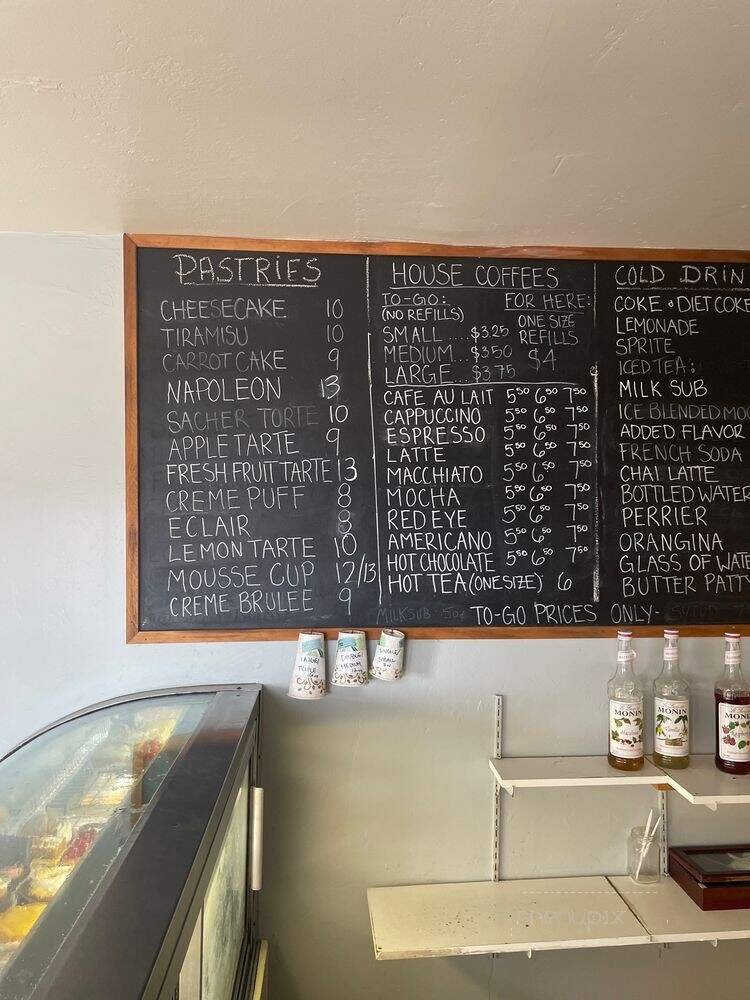 PASTRIES
CHEESECAKE 10
TIRAMISU 10
CARROT CAKE 9
NAPOLEON 13
SACHER TORTE 10
APPLE TARTE 9
FRESH FRUIT TARTE 13
CREME PUFF 8
ECLAIR 8
LEMON TARTE 10
MOUSSE CUP 12/13
CREME BRULEE 9
HOUSE COFFEES
TO-GO:
(NO REFILLS)
SMALL $3.25
MEDIUM $3.50
LARGE $3.75
FOR HERE:
ONE SIZE
REFILLS
$4
CAFE AU LAIT 5.50 6.50 7.50
CAPPUCCINO 5.50 6.50 7.50
ESPRESSO 5.50 6.50 7.50
LATTE 5.50 6.50 7.50
MACCHIATO 5.50 6.50 7.50
MOCHA 5.50 6.50 7.50
RED EYE 5.50 6.50 7.50
AMERICANO 5.50 6.50 7.50
HOT CHOCOLATE 5.50 6.50 7.50
HOT TEA (ONE SIZE) 6
MILK SUB
TO-GO PRICES ONLY-
COLD DRIN
COKE & DIET COKE
LEMONADE
SPRITE
ICED TEA:
MILK SUB
ICE BLENDED MO
ADDED FLAVOR
FRENCH SODA
CHAI LATTE
BOTTLED WATER
PERRIER
ORANGINA
GLASS OF WATE
BUTTER PATT
LARGE/
TRIPLE
DOUBLE/
MEDIUM
SINGLE/
SMALL
MONIN
MONIN
MONIN
menupix